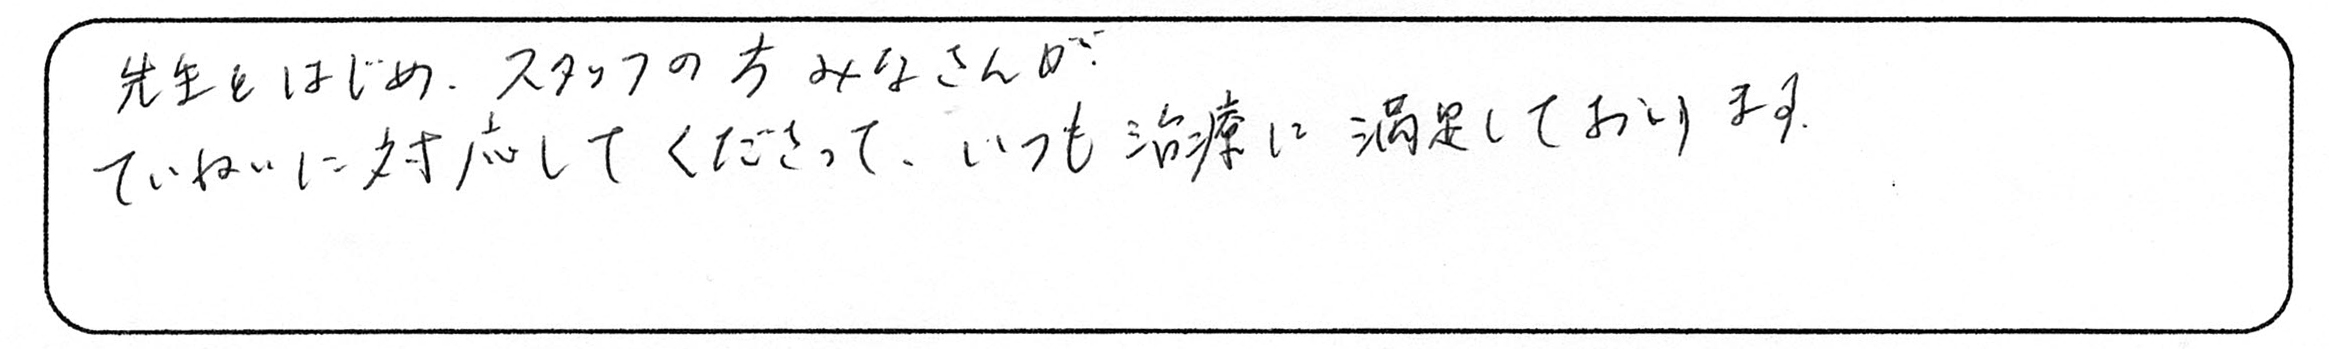 先生をはじめ、スタッフの方みなさんが、
ていねいに対応してくださって、いつも治療に満足しております。